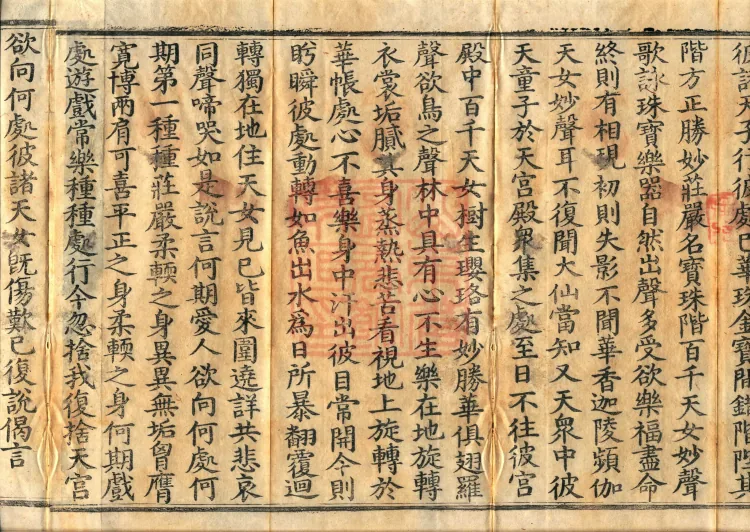 彼諸天子行彼處已華珠金寶間錯階陛其
階方正勝妙莊嚴名寶珠階百千天女妙聲
歌詠珠寶樂器自然出聲多受欲樂福盡命
終則有相現初則失影不聞華香迦陵頻伽
天女妙聲耳不復聞大仙當知又天眾中彼
天童子於天宮殿眾集之處至日不往彼宮
殿中百千天女樹生瓔珞有妙勝華俱翅羅
聲欲鳥之聲林中具有心不生樂在地旋轉
衣裳垢膩其身蒸熱悲苦看視地上旋轉於
華帳處心不喜樂身中汗出彼目常開今則
眄瞬彼處動轉如魚出水爲日所暴翻覆迴
轉獨在地住天女見已皆來圍遶詳共悲哀
同聲啼哭如是說言何期愛人欲向何處何
期第一種種莊嚴柔輭之身異異無垢胷膺
寬博兩肩可喜平正之身柔輭之身何期戲
處遊戲常樂種種處行今忽捨我復捨天宮
欲向何處彼諸天女旣傷歎已復說偈言